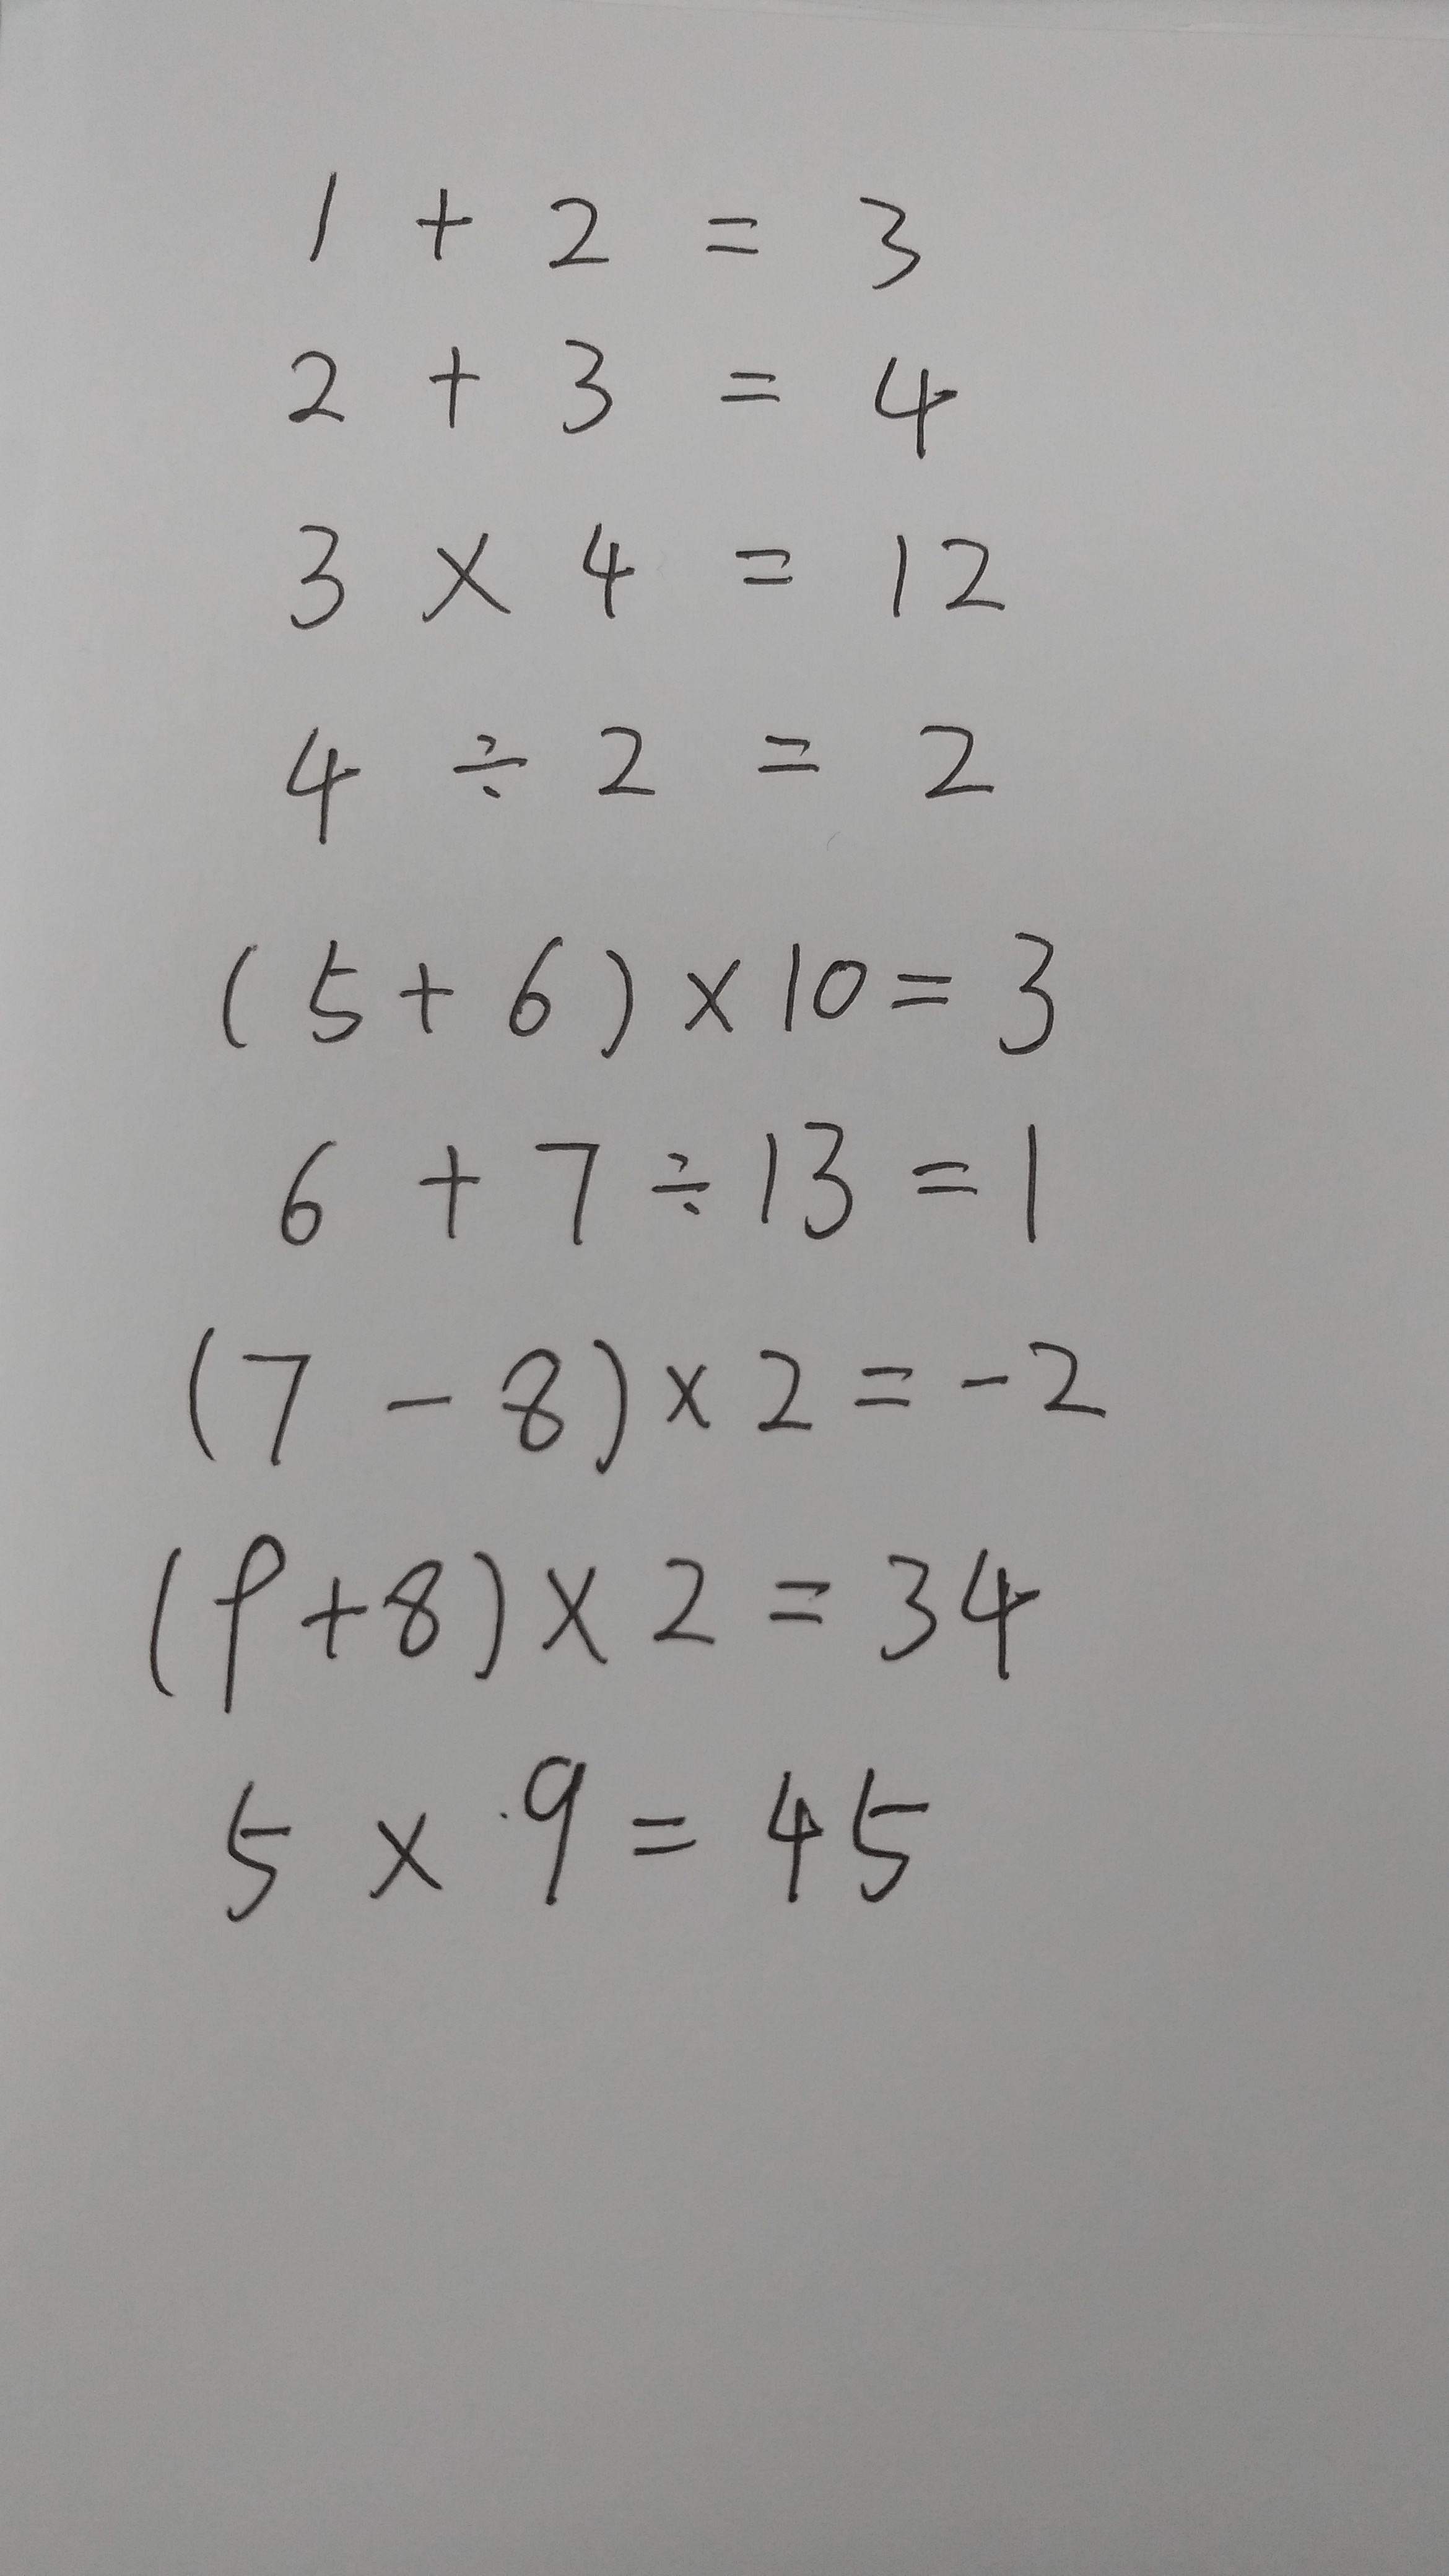 1 + 2 = 3
2 + 3 = 4
3 × 4 = 12
4 ÷ 2 = 2
(5+6)×10=3
6 + 7÷13=1
(7-8)×2=-2
(9+8)×2=34
5×9=45